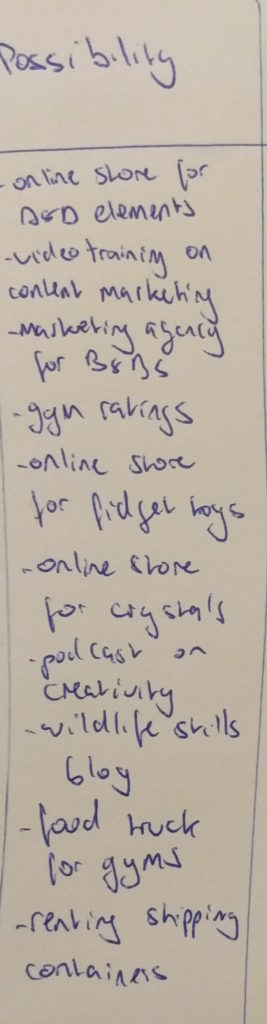 Possibility
- online store for
D&D elements
- video training on
content marketing
- marketing agency
for B&Bs
- gym ratings
- online store
for fidget toys
- online store
for crystals
- podcast on
creativity
- wildlife skills
blog
- food truck
for gyms
- renting shipping
containers